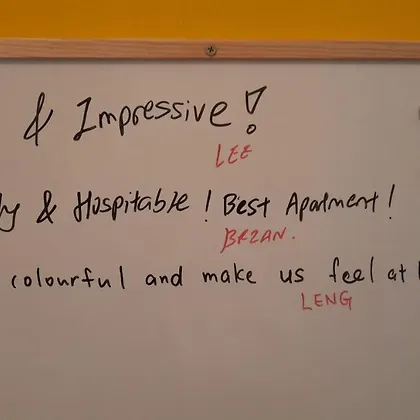 & Impressive!
LEE
& Hospitable! Best Apartment!
BRZAN.
colourful and make us feel at
LENG